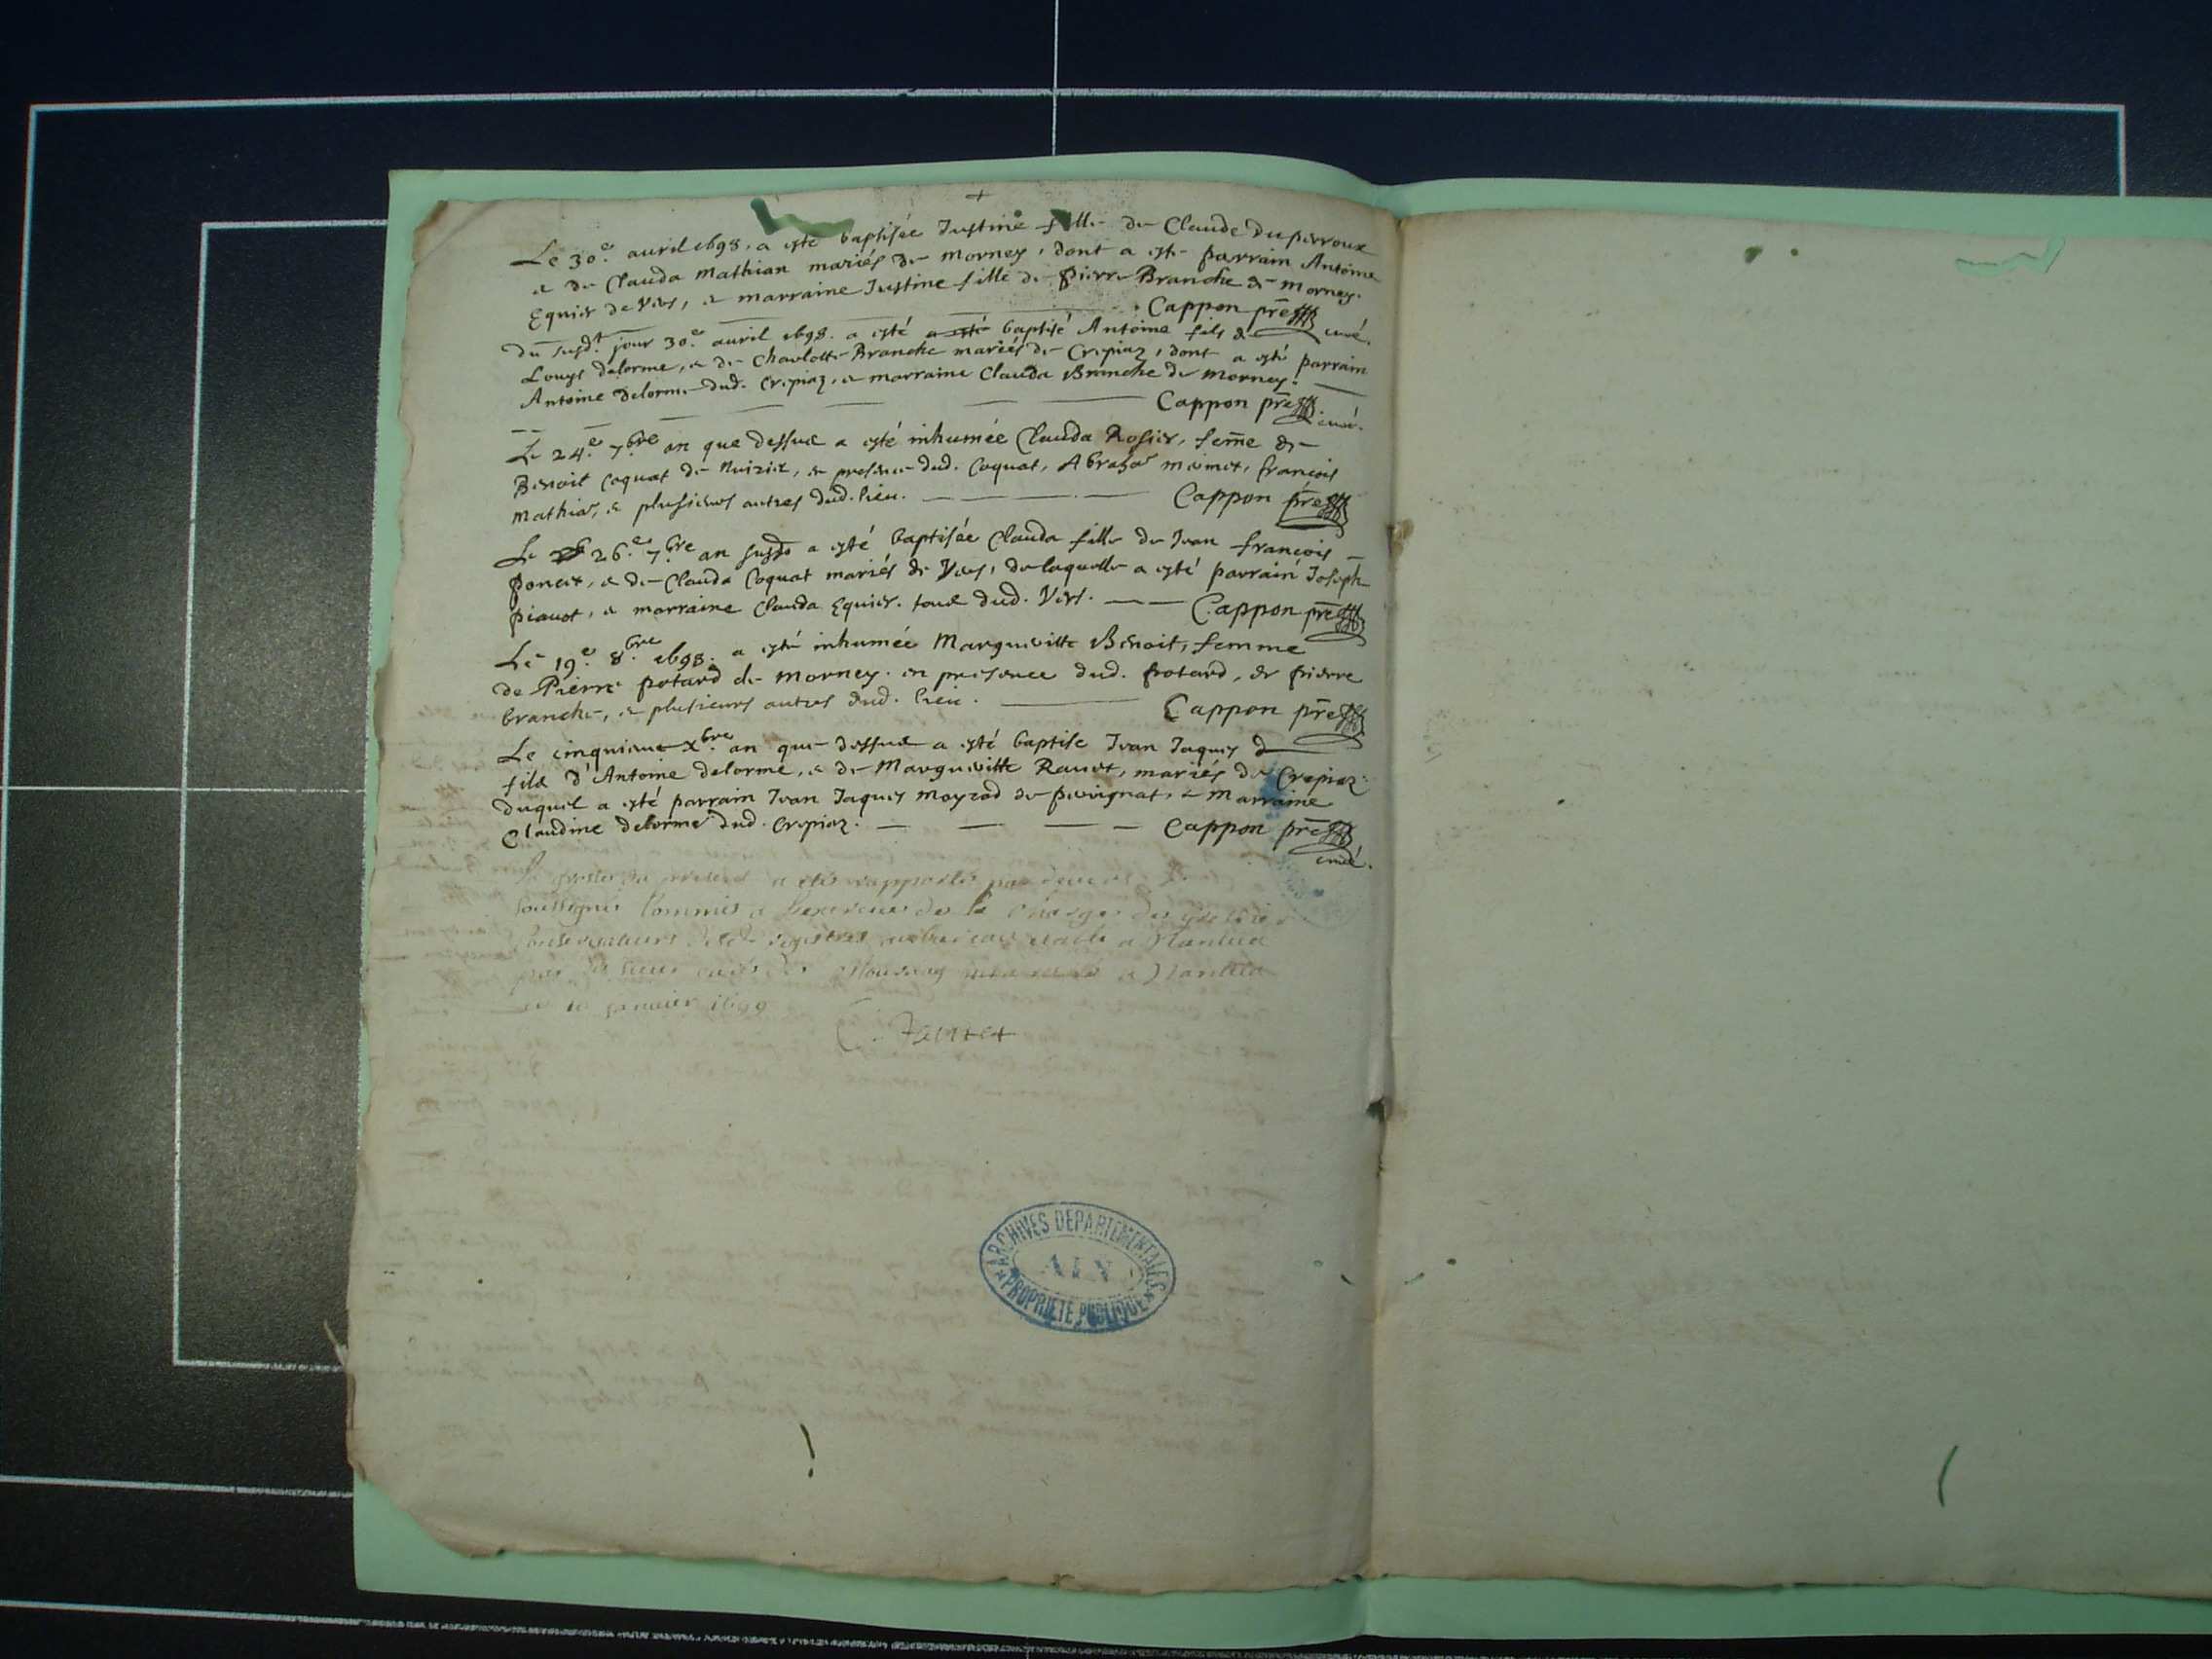 +
Le 30.e auril 1698. a esté baptisée Justine fille de Claude duperroux
& de Clauda Mathian mariés de Morney, dont a esté parrain Antoine
Equier de Vers, & marraine Justine fille de pierre Branche de Morney.
Cappon pre curé.
du susdt. jour 30.e auril 1698. a esté a esté baptisé Antoine fils de
Louys delorme, & de Charlotte Branche mariés de Crepiaz, dont a esté parrain
Antoine Delorme dud. Crepiaz, & marraine Clauda Branche de Morney.
Cappon pre curé.
Le 24.e 7.bre an que dessus a esté inhumée Clauda Rosier, feme de
Benoit Coquat de presence dud. Coquat, françois
Mathia, & plusieurs autres dud. lieu. Cappon pre
Le 26.e 7.bre an susd a esté baptisée Clauda fille de Jean françois
poncet, & de Clauda Coquat mariés de Vers, de laquelle a esté parrain Joseph
marraine Clauda Equier. tous dud. Vers. Cappon pre
Le 19.e 8.bre 1698. a esté inhumée Margueritte Benoit, femme
de Pierre potard de Morney. en presence dud. potard, de pierre
branche, & plusieurs autres dud. lieu. Cappon pre
Le cinquieme X.bre an que dessus a esté baptise Jean Jaques
fils d'Antoine delorme, & de Margueritte Rauet, mariés de Crepiaz.
duquel a esté parrain Jean Jaques & Marraine
Claudine delorme dud. Crepiaz. Cappon pre
curé.
present a este rapporté par deuers
soussigné Commis a l'exercice de la charge de greffier
Conseruateur des registres a Nantua
par a Nantua
ce 10 januier 1699
ARCHIVES DEPARTEMENTALES
AIN
PROPRIETE PUBLIQUE